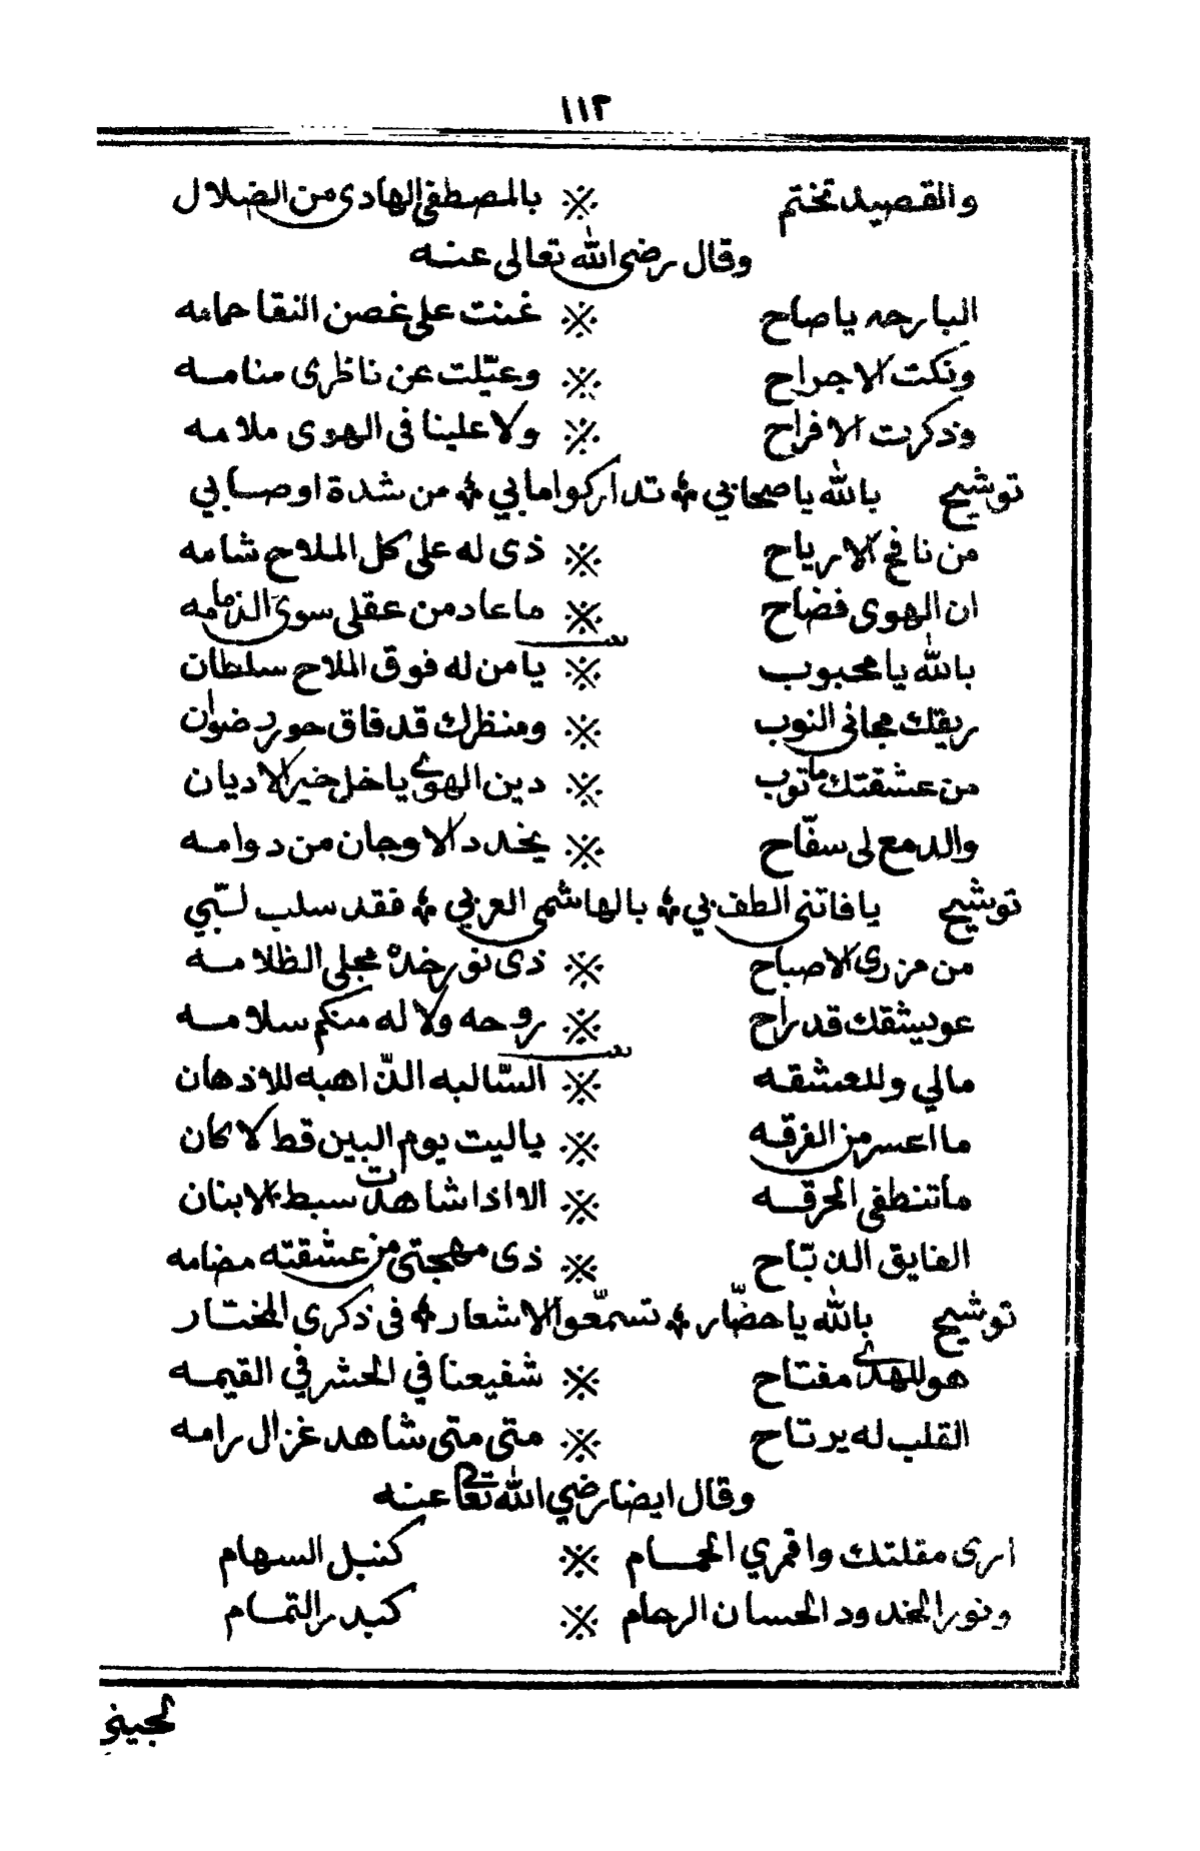 ١١٢
والقصيد تختم ※ بالمصطفى الهادى من الضلال
وقال رضى الله تعالى عنه
البارحه ياصاح ※ غنت على غصن النقا حمامه
ونكت الاجراح ※ وعيّلت عن ناظرى منامه
وذكرت الافراح ※ ولا علينا فى الهوى ملامه
توشيح بالله ياصحابي ؞ تداركوا مابي ؞ من شدة اوصابي
من نافح الارياح ※ ذى له على كل الملاح شامه
ان الهوى فضاح ※ ماعاد من عقلى سوى الذمامه
بالله يا محبوب ※ يامن له فوق الملاح سلطان
ريقك مجانى النوب ※ ومنظرك قد فاق حور رضوان
من عشقتك ماتوب ※ دين الهوى ياخل خير الاديان
والدمع لى سفّاح ※ يخدد الاوجان من دوامه
توشيح يافاتنى الطف بي ؞ بالهاشمى العربي ؞ فقد سلب لبّي
من مزرى الاصباح ※ ذى نور خده مجلى الظلامه
عويشقك قد راح ※ روحه ولا له منكم سلامه
مالي وللعشقه ※ السّالبه الذّاهبه للاذهان
مااعسر من الفرقه ※ ياليت يوم البين قط لاكان
ماتنطفى الحرقه ※ الا اذا شاهدت سبط الابنان
الفايق الذبّاح ※ ذى مهجتى من عشقته مضامه
توشيح بالله ياحضّار ؞ تسمّعوا الاشعار ؞ فى ذكرى المختار
هو للهدى مفتاح ※ شفيعنا في الحشر في القيمه
القلب له يرتاح ※ متى متى شاهد غزال رامه
وقال ايضا رضي الله تعالى عنه
ارى مقلتك واقمري الحمام ※ كنبل السهام
ونور الخدود الحسان الرحام ※ كبدر التمام
لجيني